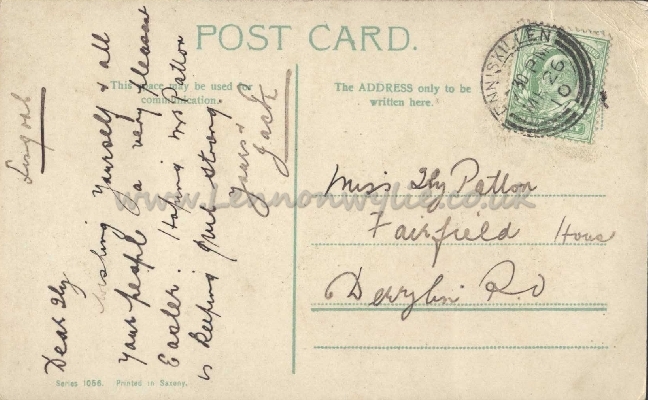 POST CARD.
This space may be used for
communication.
The ADDRESS only to be
written here.
ENNISKILLEN
PM
MR 26
10
Dear Ily
Wishing yourself & all
your people a very pleasant
Easter. Hoping Mrs Patton
is keeping quite strong
Yours
Jack
Miss Ily Patton
Fairfield House
Derrylin R.O
www.Lennonwylie.co.uk
Series 1056. Printed in Saxony.